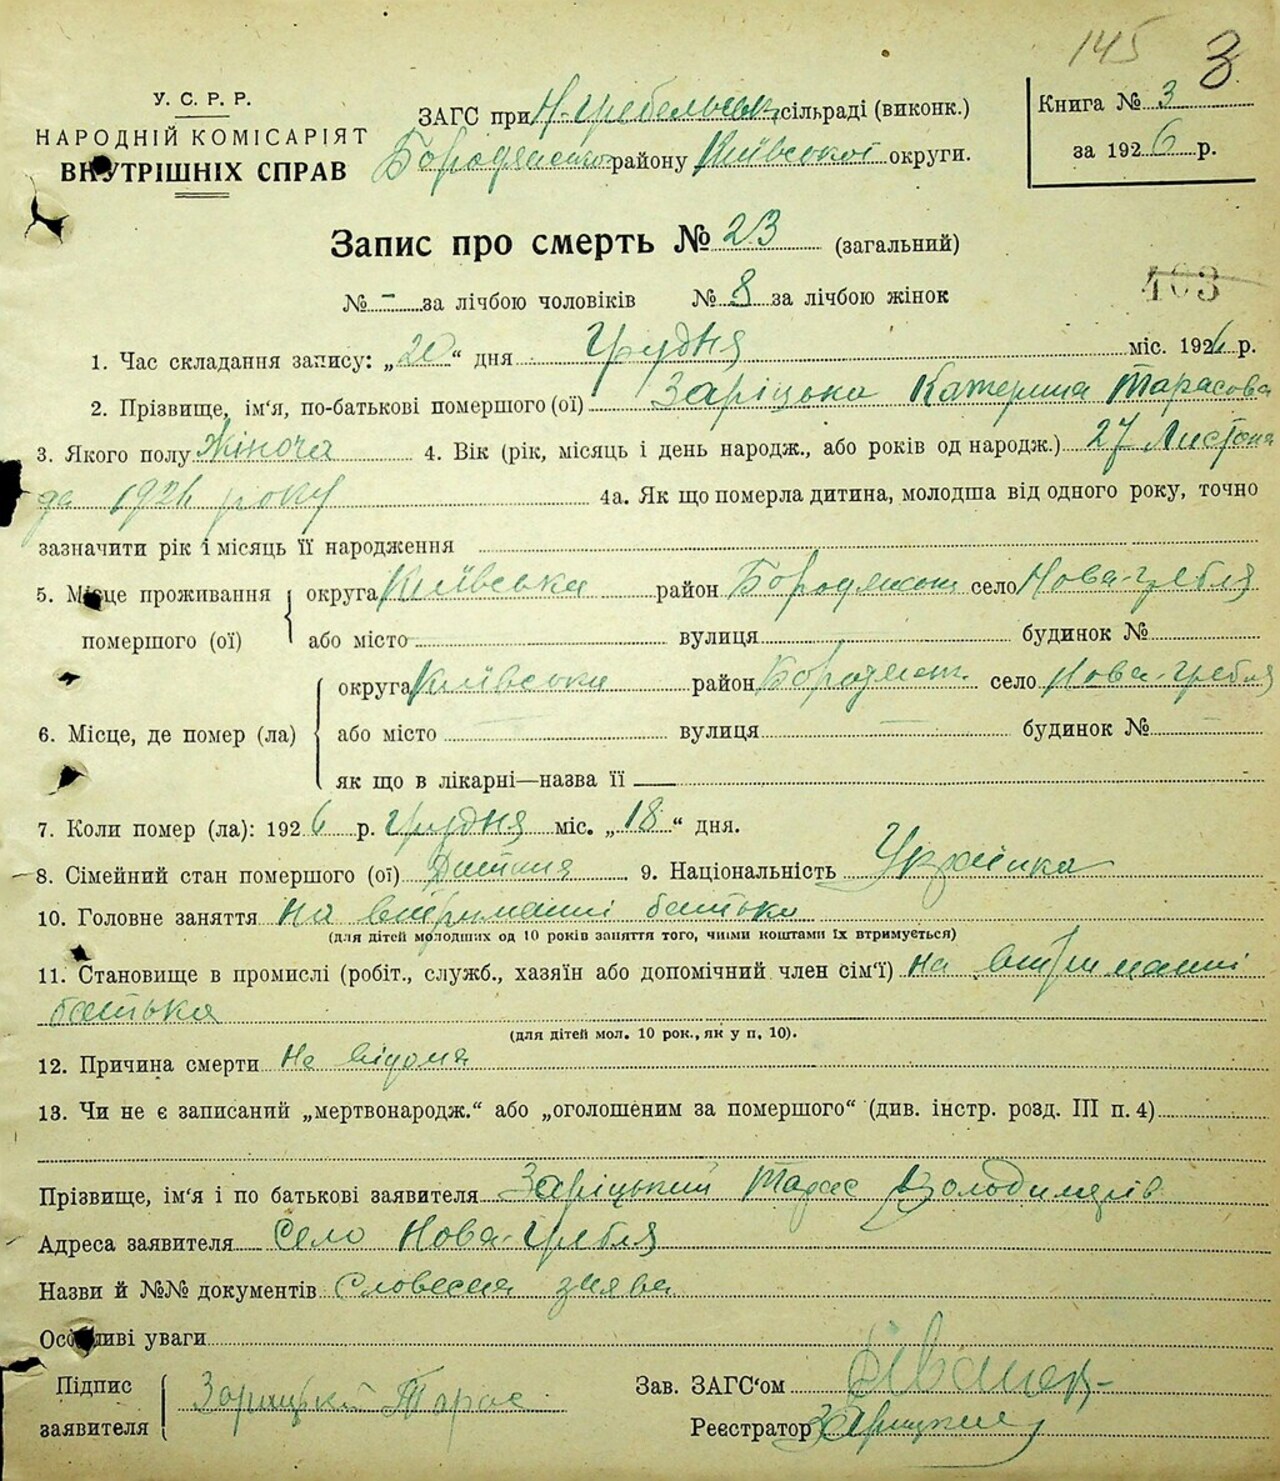 145 3
У. С. Р. Р.
НАРОДНІЙ КОМІСАРІЯТ
ВНУТРІШНІХ СПРАВ
ЗАГС при Н-Гребельськ. сільраді (виконк.)
Бородянсько району Київської округи.
Книга № 3
за 1926 р.
Запис про смерть № 23 (загальний)
№ - за лічбою чоловіків № 8 за лічбою жінок
403
1. Час складання запису: „20“ дня Грудня міс. 1926 р.
2. Прізвище, ім‘я, по-батькові помершого (ої) Заріцька Катерина Тарасова
3. Якого полу Жіноча 4. Вік (рік, місяць і день народж., або років од народж.) 27 Листопа
да 1926 року 4а. Як що померла дитина, молодша від одного року, точно
зазначити рік і місяць її народження
5. Місце проживання помершого (ої) округа Київська район Бородянськ село Нова-Гребля
або місто вулиця будинок №
6. Місце, де помер (ла) округа Київська район Бородянськ. село Нова-Гребля
або місто вулиця будинок №
як що в лікарні—назва її
7. Коли помер (ла): 1926 р. Грудня міс. „18“ дня.
8. Сімейний стан помершого (ої) Дитина 9. Національність Українка
10. Головне заняття На втриманні батька
(для дітей молодших од 10 років заняття того, чиїми коштами їх втримується)
11. Становище в промислі (робіт., служб., хазяїн або допомічний член сім‘ї) на втриманні
батька
(для дітей мол. 10 рок., як у п. 10).
12. Причина смерти Не відома
13. Чи не є записаний „мертвонародж.“ або „оголошеним за помершого“ (див. інстр. розд. III п. 4)
Прізвище, ім‘я і по батькові заявителя Заріцький Тарас Володимирів
Адреса заявителя Село Нова-Гребля
Назви й №№ документів Словесна заява
Особливі уваги
Підпис заявителя Зорицкій Тарас
Зав. ЗАГС‘ом
Реєстратор Зарицкий